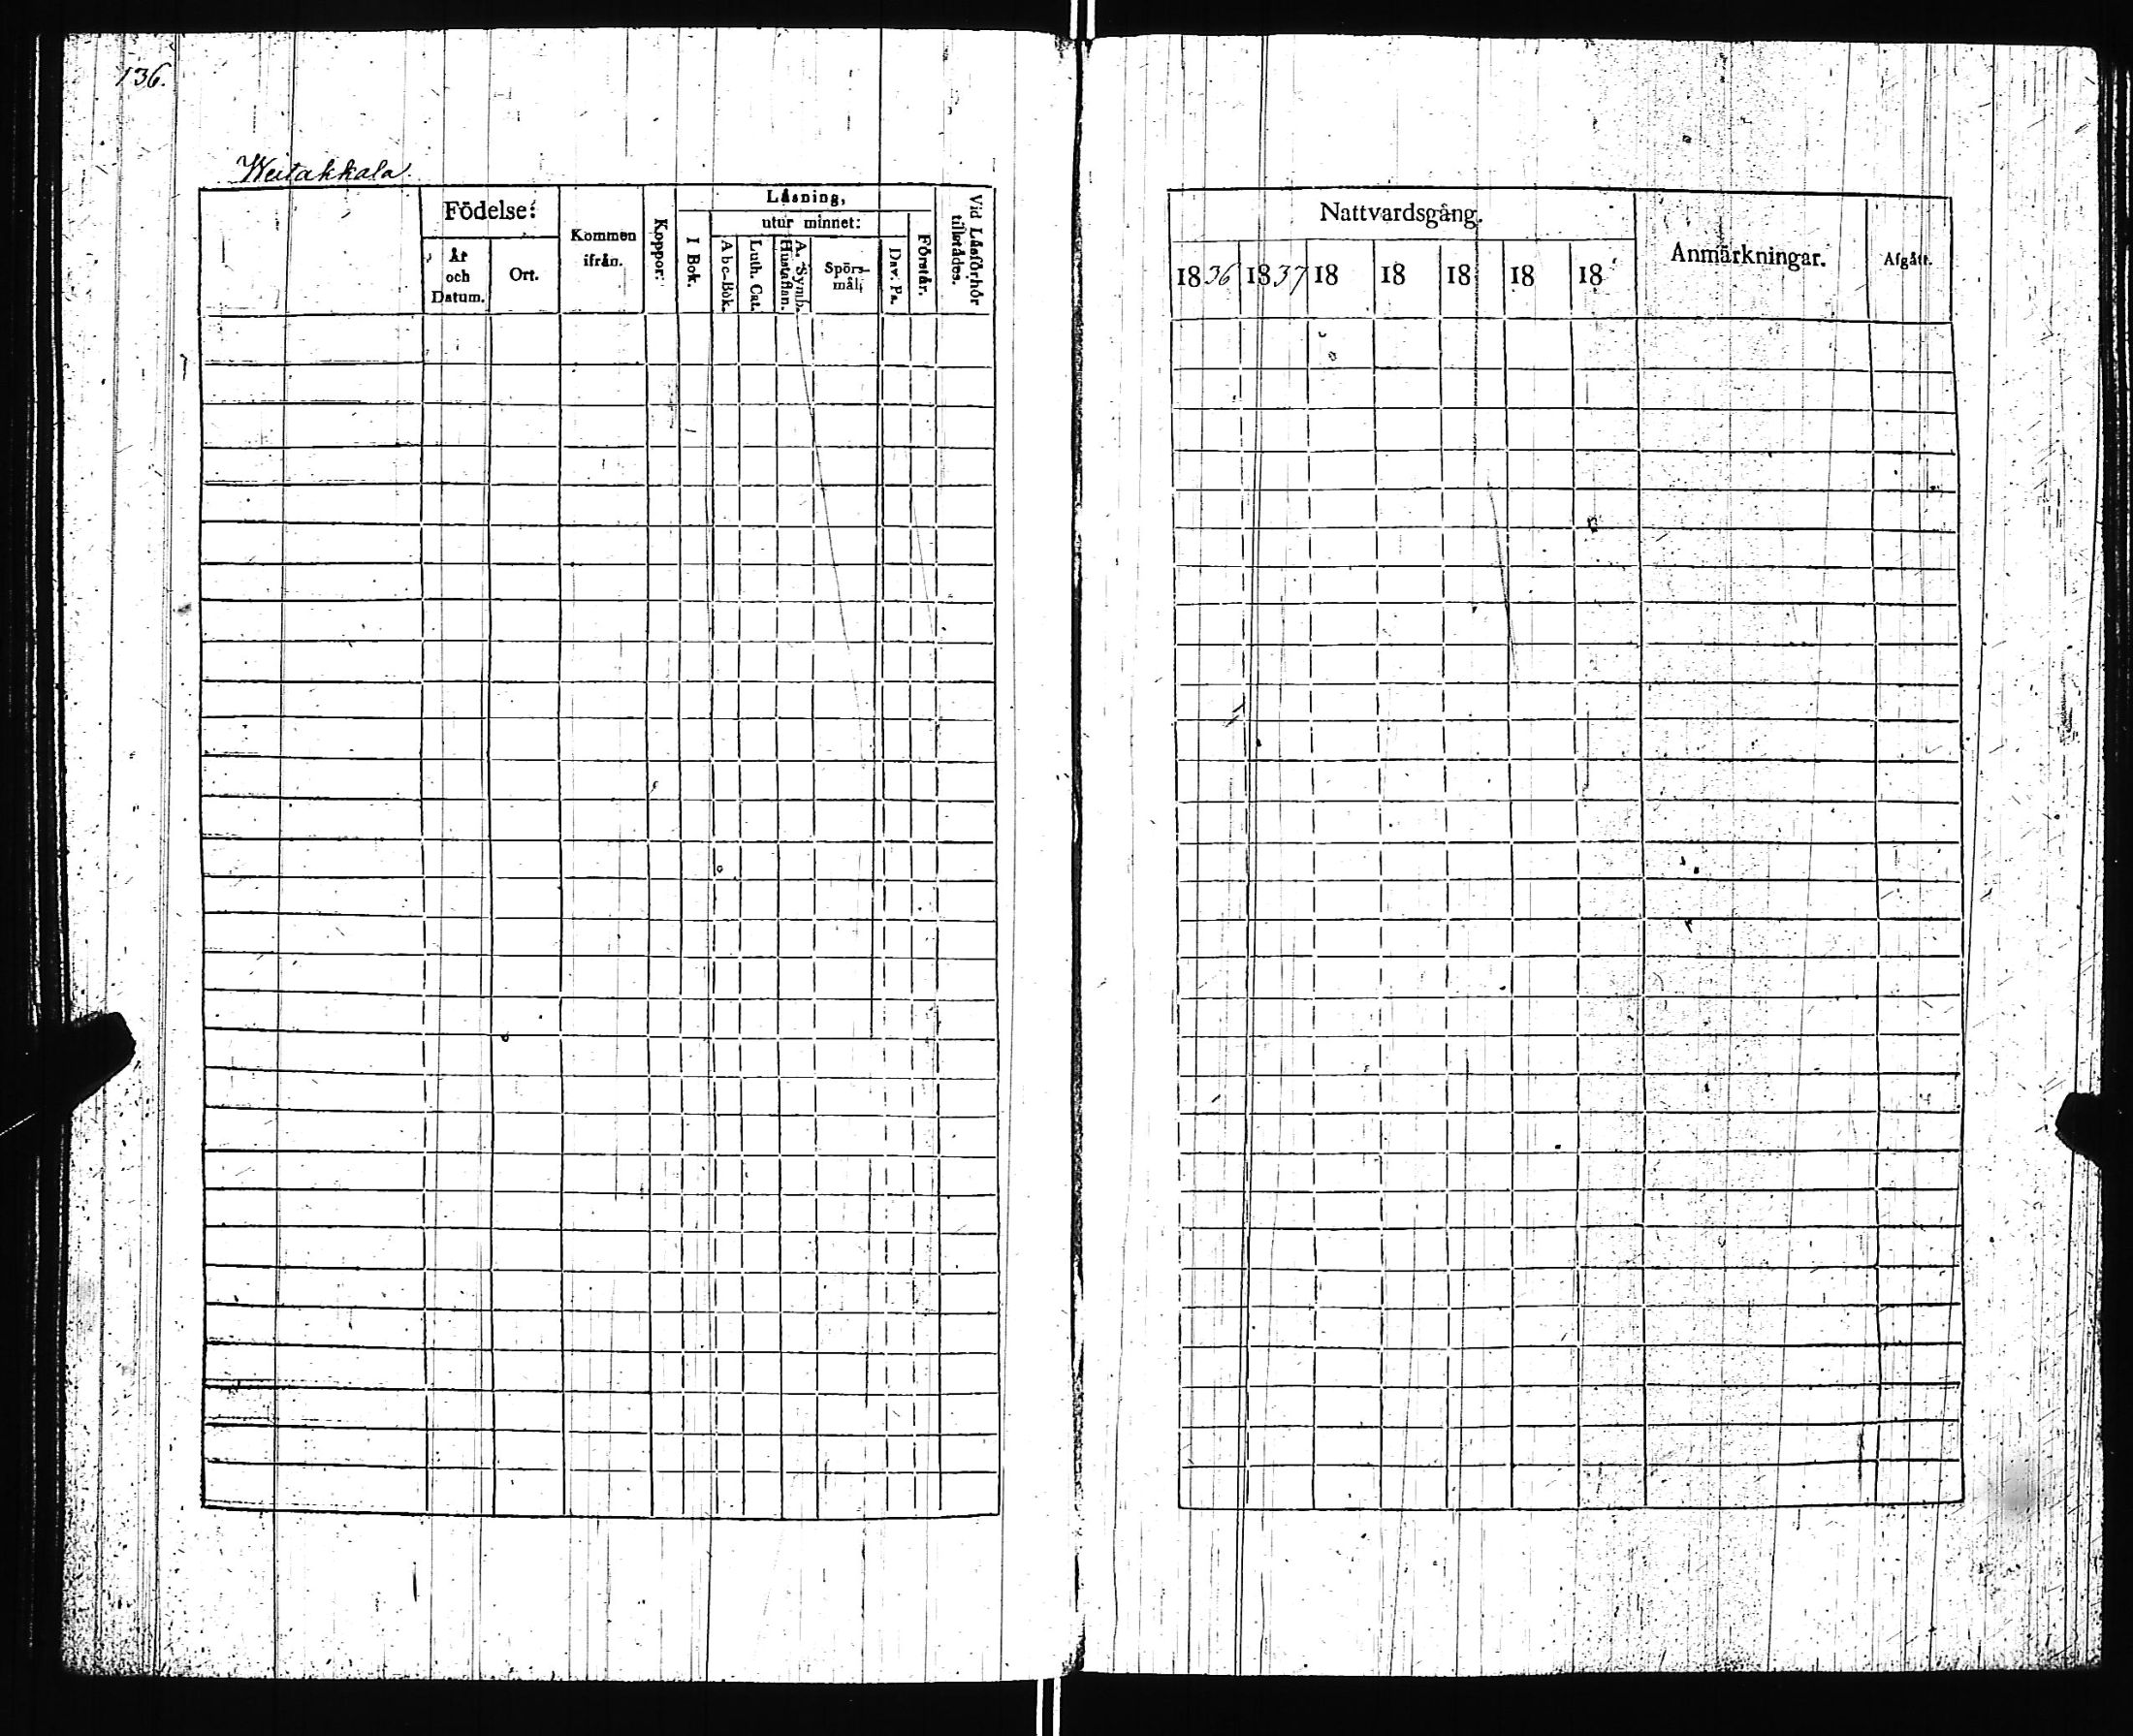 136.
Weitakkala.
Födelse:
År och Datum.
Ort.
Kommen ifrån.
Koppor:
Läsning,
I Bok.
utur minnet:
A b c-Bok.
Luth. Cat.
A. Symb. Hustaflan.
Spörs-
mål.
Dav. Ps.
Förstår.
Vid Läsförhör tillstädes.
Nattvardsgång.
1836 1837 18 18 18 18 18
Anmärkningar.
Afgått.